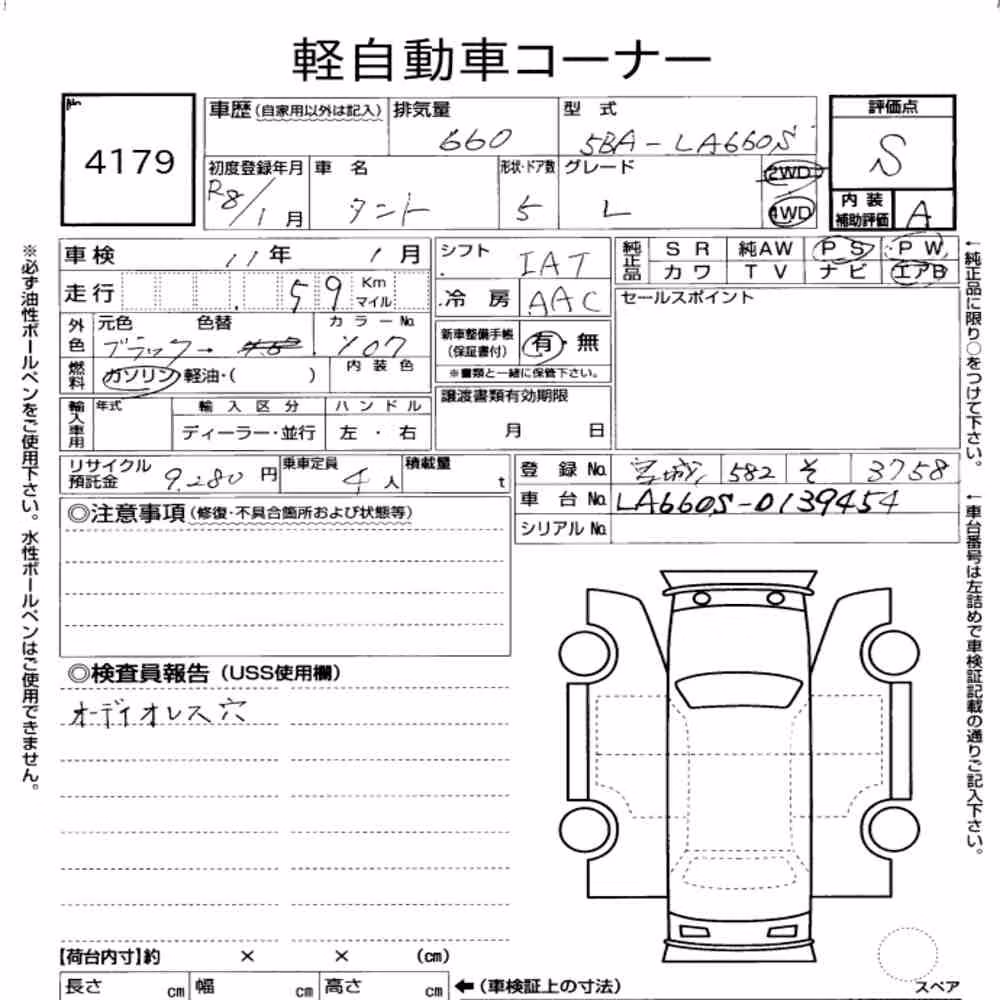 軽自動車コーナー
4179
車歴(自家用以外は記入) 排気量 660 型式 5BA-LA660S 評価点 S
初度登録年月 R8/1月 車名 タント 形状・ドア数 5 グレード L 2WD 4WD 内装補助評価 A
車検 11年 1月 シフト IAT 純正品 SR 純AW PS PW
走行 59 Km マイル 冷房 AAC カワ TV ナビ エアB
外色 元色 ブラック→ 色替 カラーNo. X07
新車整備手帳(保証書付) 有・無
※書類と一緒に保管下さい。
セールスポイント
燃料 ガソリン 軽油・( ) 内装色
輸入車用 年式 輸入区分 ディーラー・並行 ハンドル 左・右
譲渡書類有効期限 月 日
リサイクル預託金 9,280円 乗車定員 4人 積載量 t
登録No. 宮城 582 そ 3758
車台No. LA660S-0139454
シリアルNo.
◎注意事項(修復・不具合箇所および状態等)
◎検査員報告(USS使用欄)
オーディオレス穴
【荷台内寸】約 × × (cm)
長さ cm 幅 cm 高さ cm ←(車検証上の寸法)
スペア
※必ず油性ボールペンをご使用下さい。水性ボールペンはご使用できません。
←純正品に限り○をつけて下さい。
←車台番号は左詰めで車検証記載の通りご記入下さい。